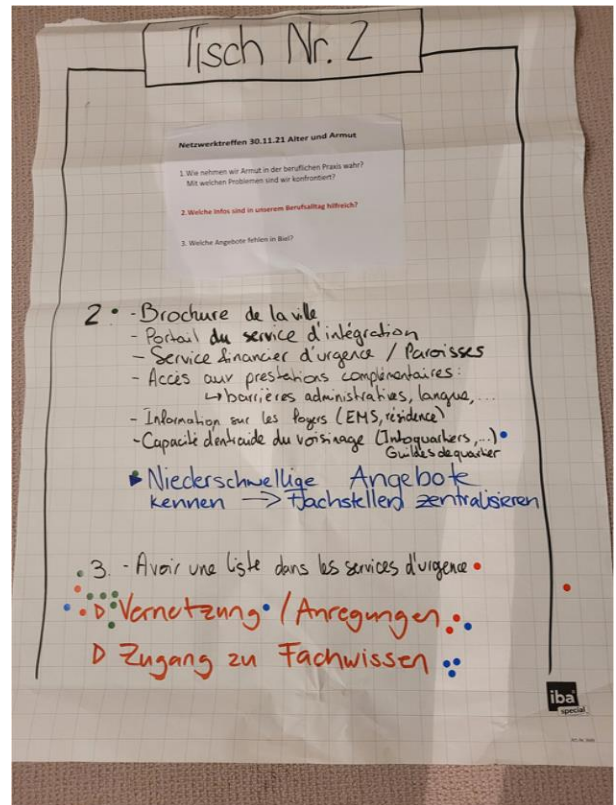 Tisch Nr. 2
Netzwerktreffen 30.11.21 Alter und Armut
1. Wie nehmen wir Armut in der beruflichen Praxis wahr?
Mit welchen Problemen sind wir konfrontiert?
2. Welche Infos sind in unserem Berufsalltag hilfreich?
3. Welche Angebote fehlen in Biel?
2 - Brochure de la ville
- Portail du service d'intégration
- Service financier d'urgence / Paroisses
- Accès aux prestations complémentaires:
↳ barrières administratives, langue,...
- Information sur les foyers (EMS, résidence)
- Capacité d'entraide du voisinage (Infoquartiers,...)
Guildes de quartier
Niederschwellige Angebote
kennen → Fachstellen zentralisieren
3. - Avoir une liste dans les services d'urgence
Vernetzung / Anregungen
Zugang zu Fachwissen
iba
special